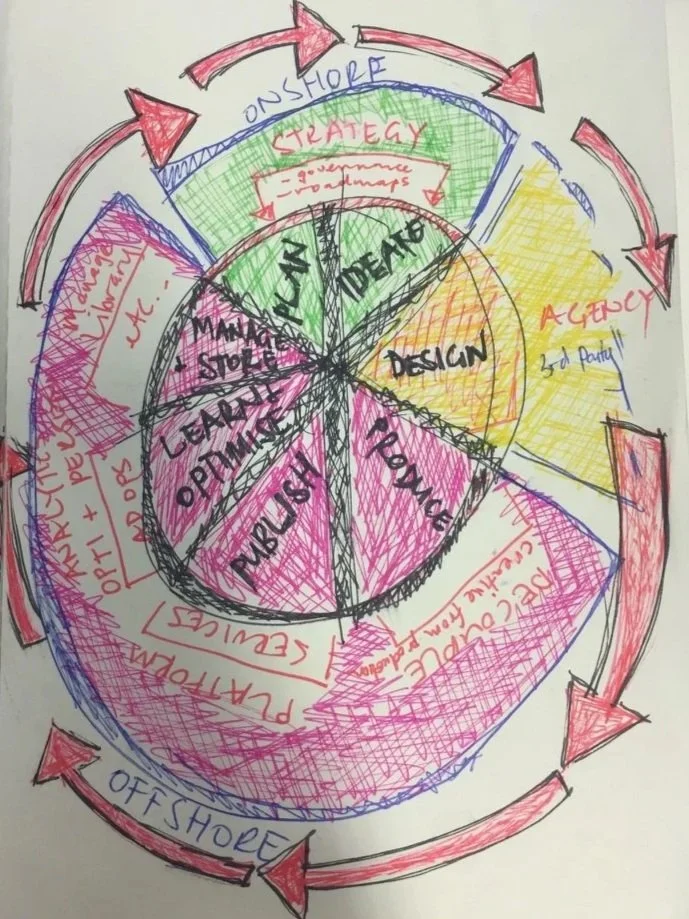 ONSHORE
STRATEGY
- governance
- roadmaps
PLAN
IDEATE
DESIGN
AGENCY
3rd Party
PRODUCE
DECOUPLE
creative from production
PUBLISH
PLATFORM
SERVICES
LEARN +
OPTIMISE
AD OPS
OPTI + PERS
ANALYTIC
MANAGE
+ STORE
Manage
Library
etc...
OFFSHORE